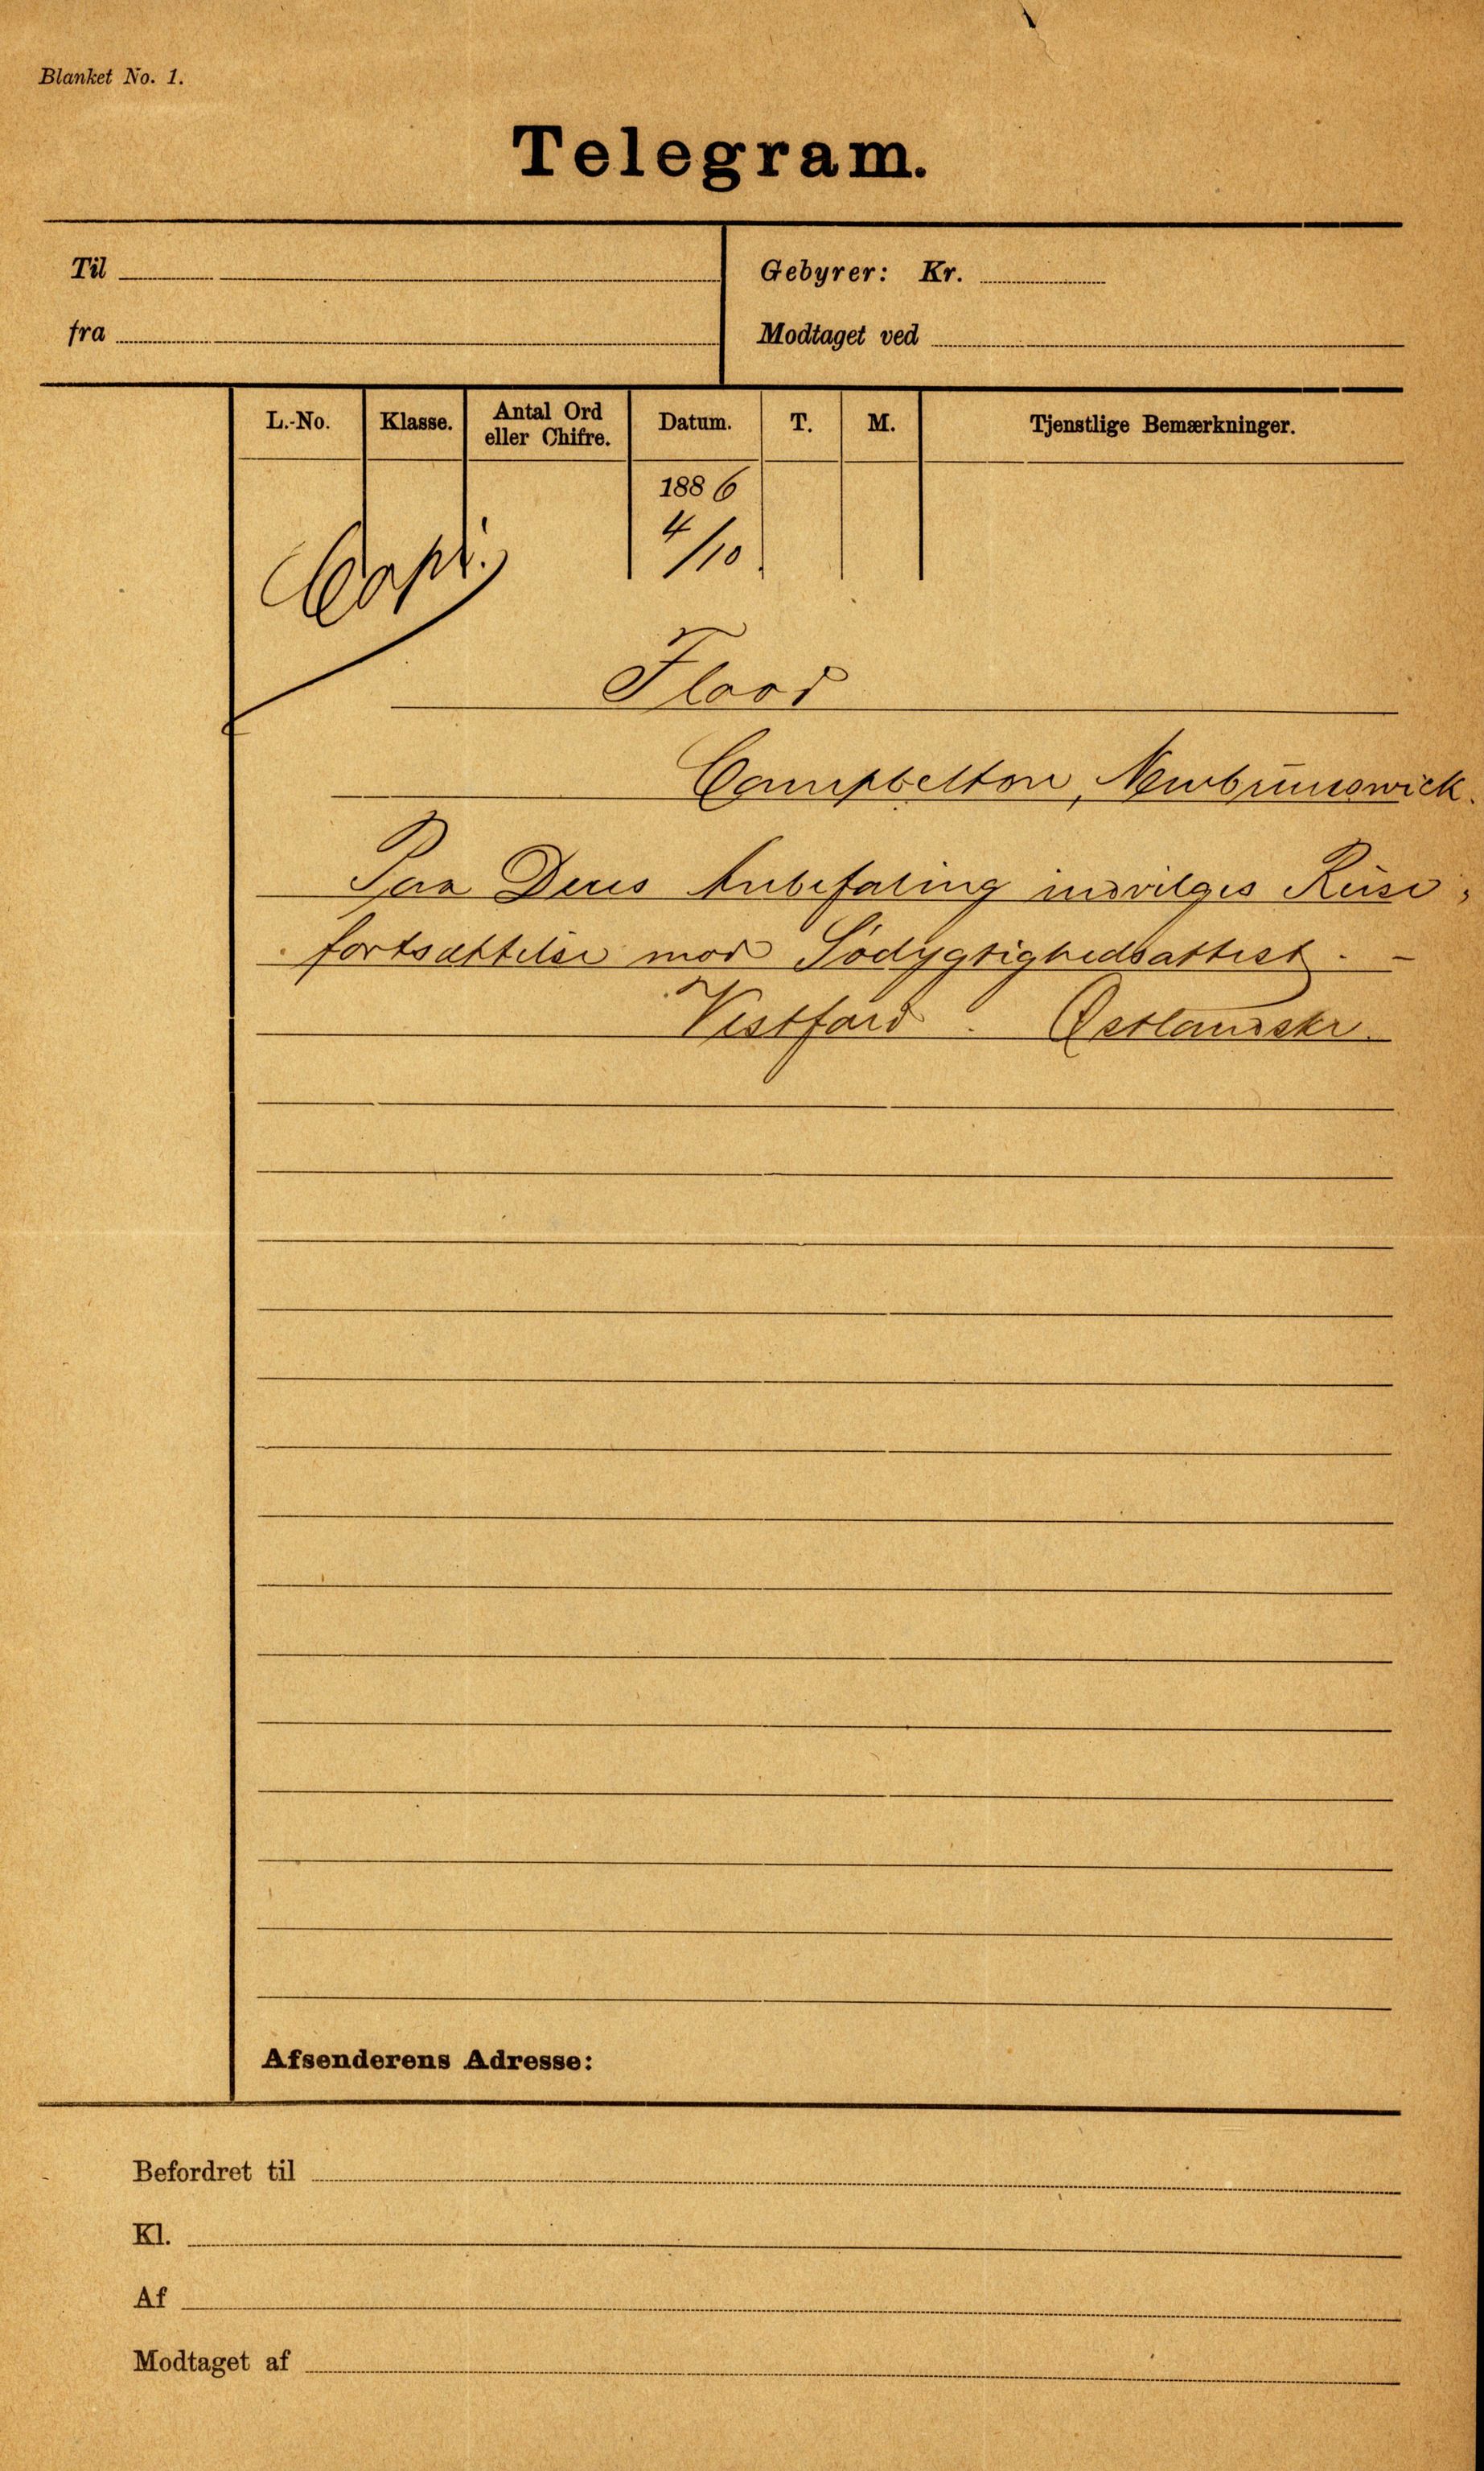 Blanket No. 1.
Telegram.
Til
Gebyrer: Kr.
fra
Modtaget ved
L.-No. Klasse. Antal Ord eller Chifre. Datum. T. M. Tjenstlige Bemærkninger.
1886
4/10.
Copi.
Flood
Campbelton, Newbrunswick.
Paa Deres Anbefaling indvilges Reise,
fortsættelse mod Södygtighedsattest. -
Vestford. Østlandske.
Afsenderens Adresse:
Befordret til
Kl.
Af
Modtaget af